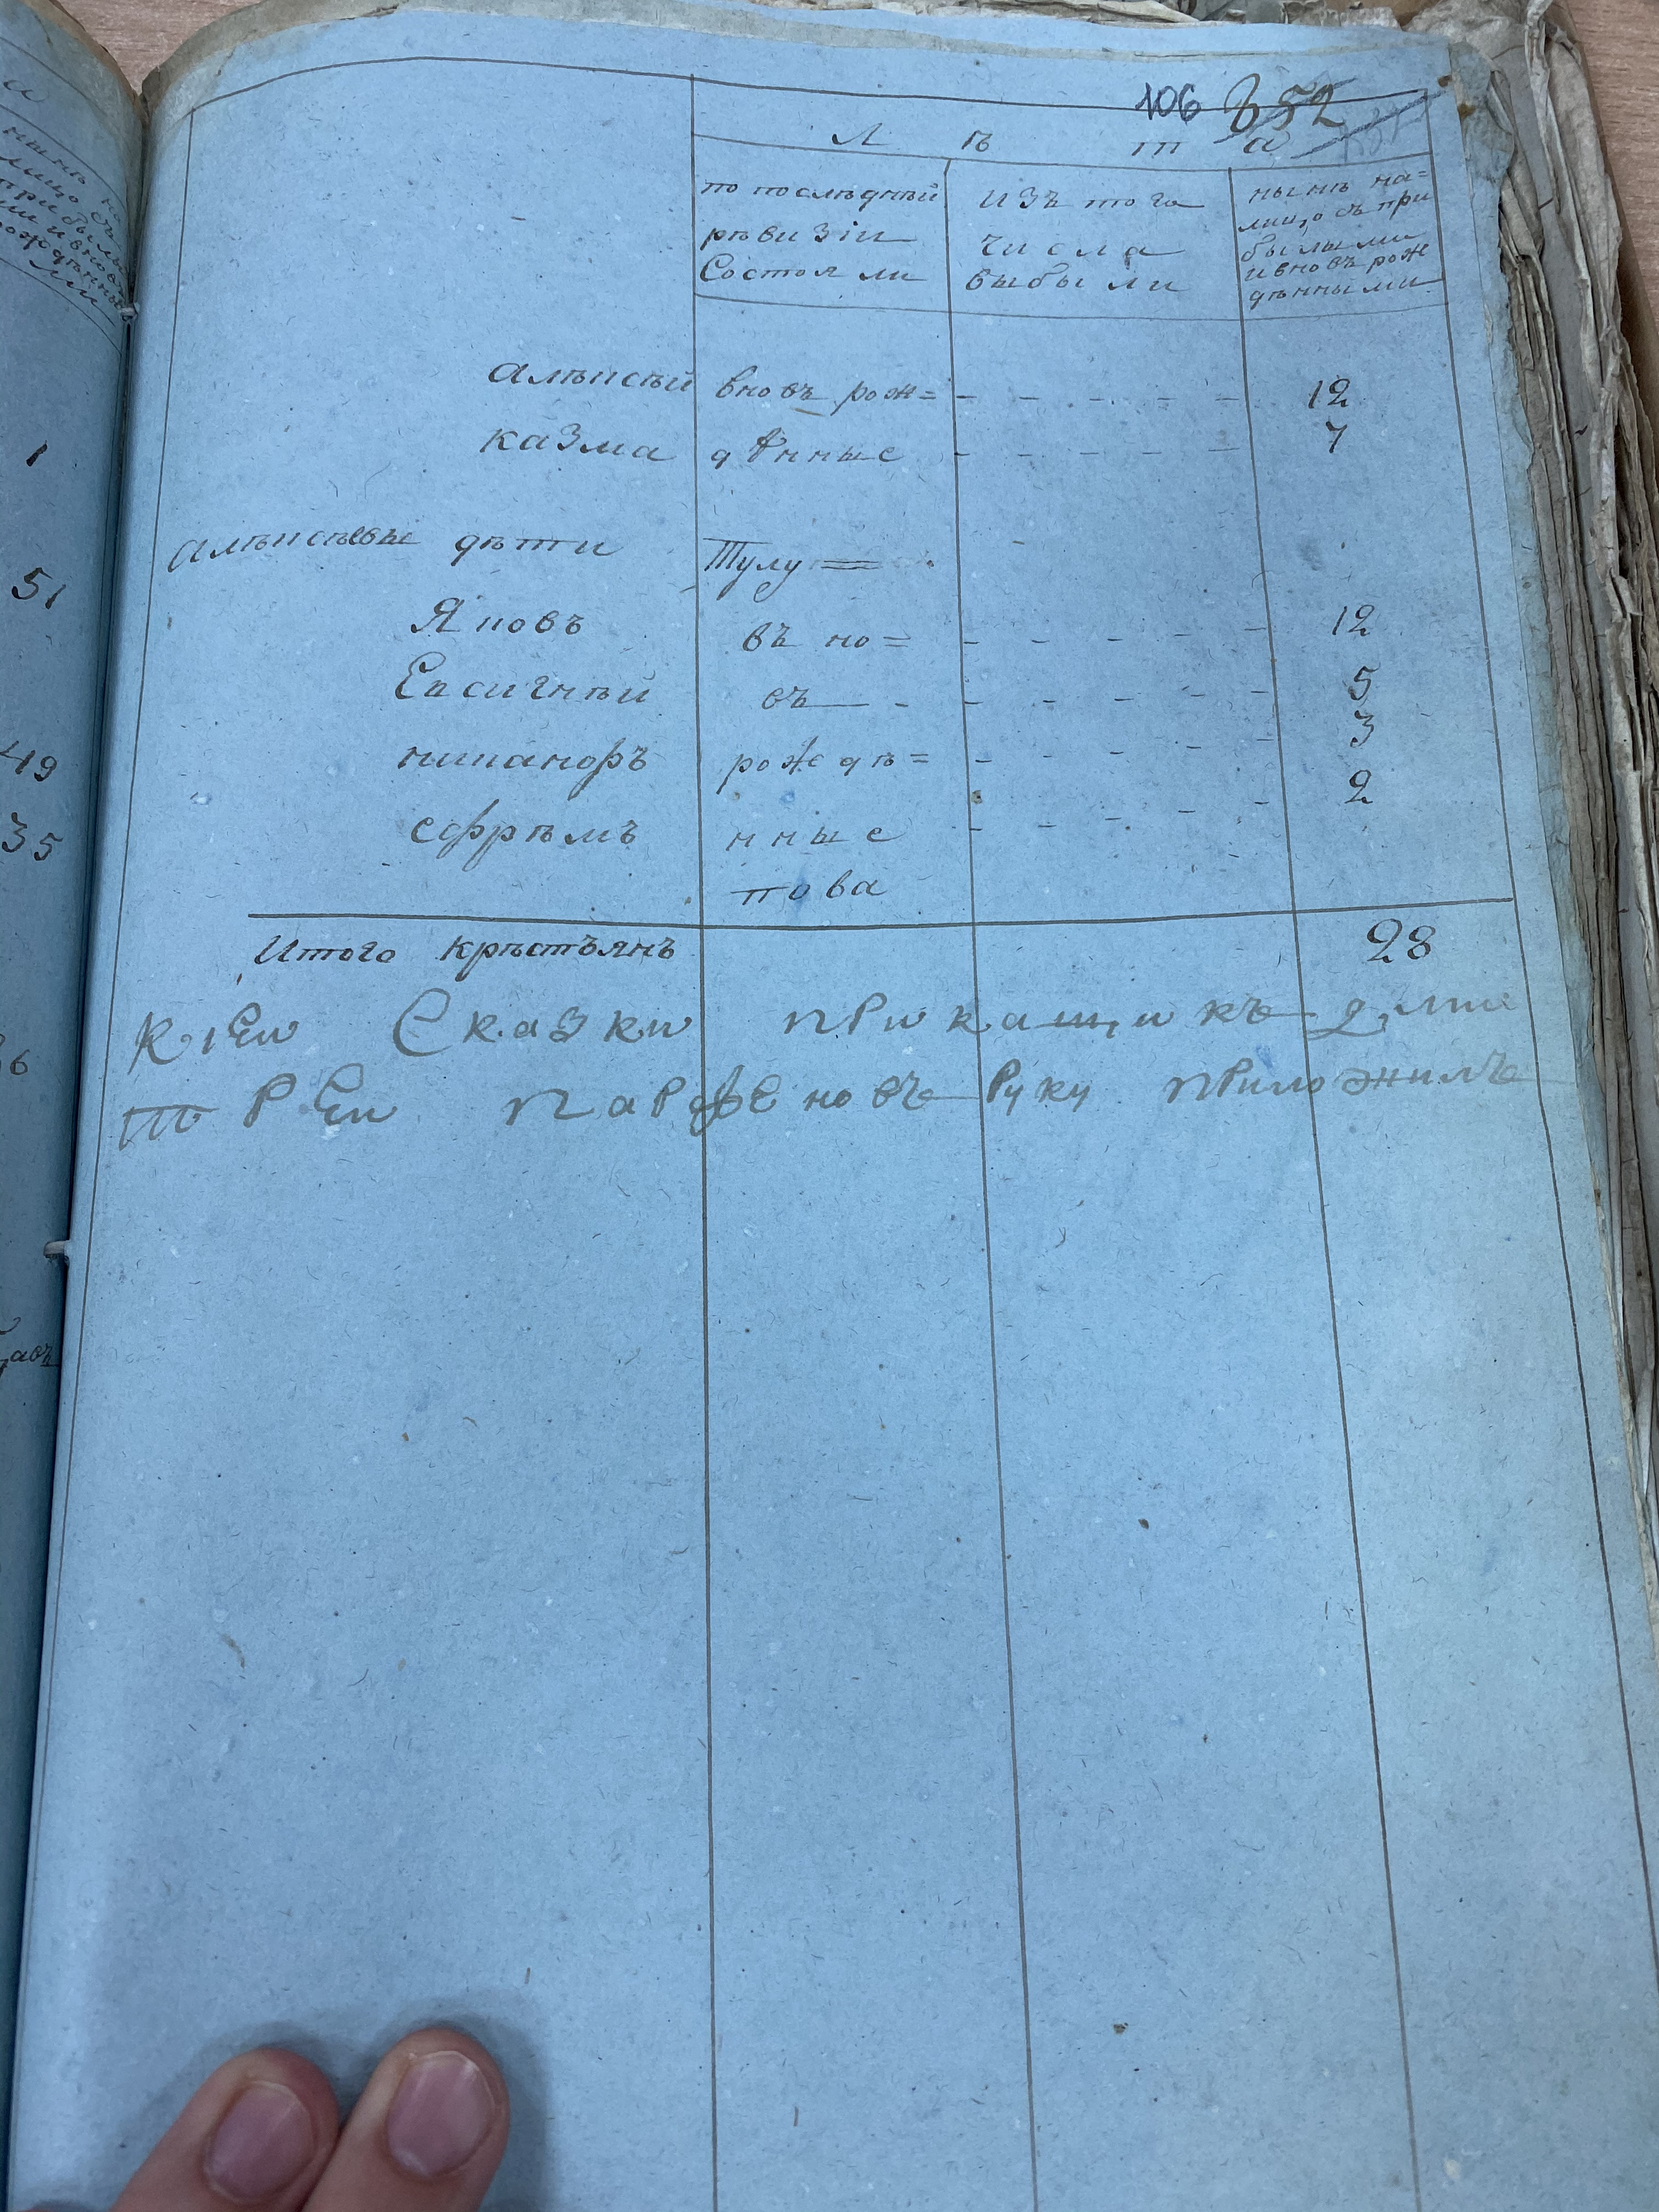 106 852
Л ѣ т а
по послѣдный
рѣвизіи
Состояли
изъ того
числа
выбыли
нынѣ на=
лицо съ при
былыми
и вновь рож
дѣнными
алѣксѣй вновь рож= - - - - - 12
казма дѣнные - - - - - 7
алѣксѣевы дѣти Тулу=
Яковъ въ но= - - - - - 12
Евсигнѣй въ - - - - - - 5
никаноръ рождѣ= - - - - - 3
ефрѣмъ нные - - - - - 2
пова
Итого крѣстьянъ 28
К сЕи Сказки прикащикъ дми
трЕи парфЕновъ руку приложилъ
1
51
49
35